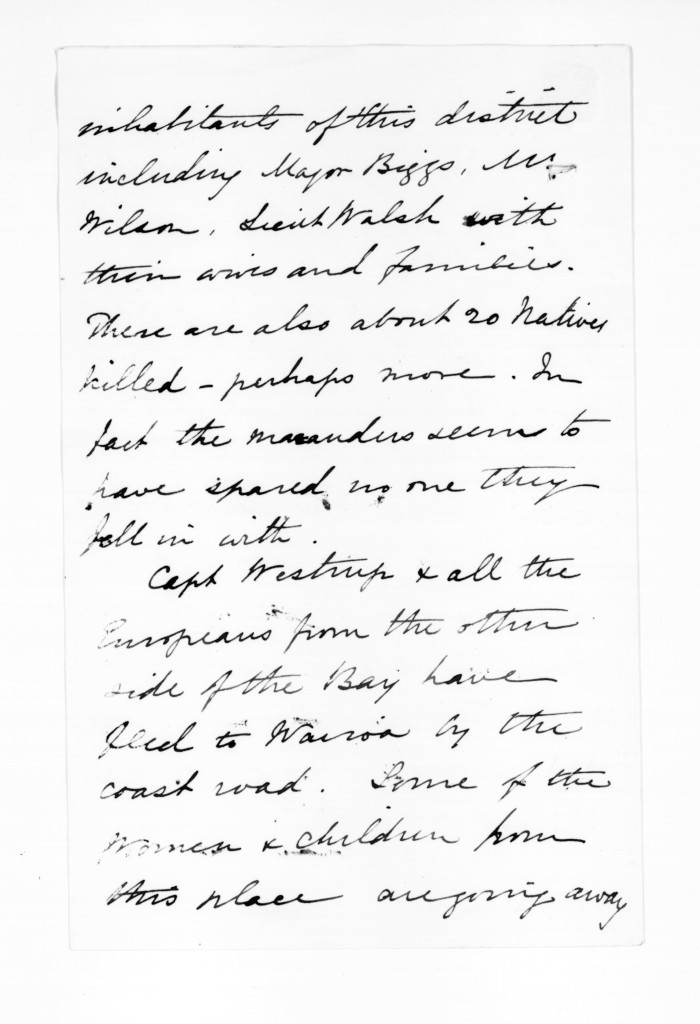 inhabitants of this district
including Major Biggs, Mr
Wilson, Lieut Walsh with
their wives and families.
There are also about 20 Natives
killed - perhaps more. In
fact the marauders seems to
have spared no one they
fell in with.
Capt Westrup & all the
Europeans from the other
side of the Bay have
fled to Wairoa by the
coast road. Some of the
Women & children from
this place are going away